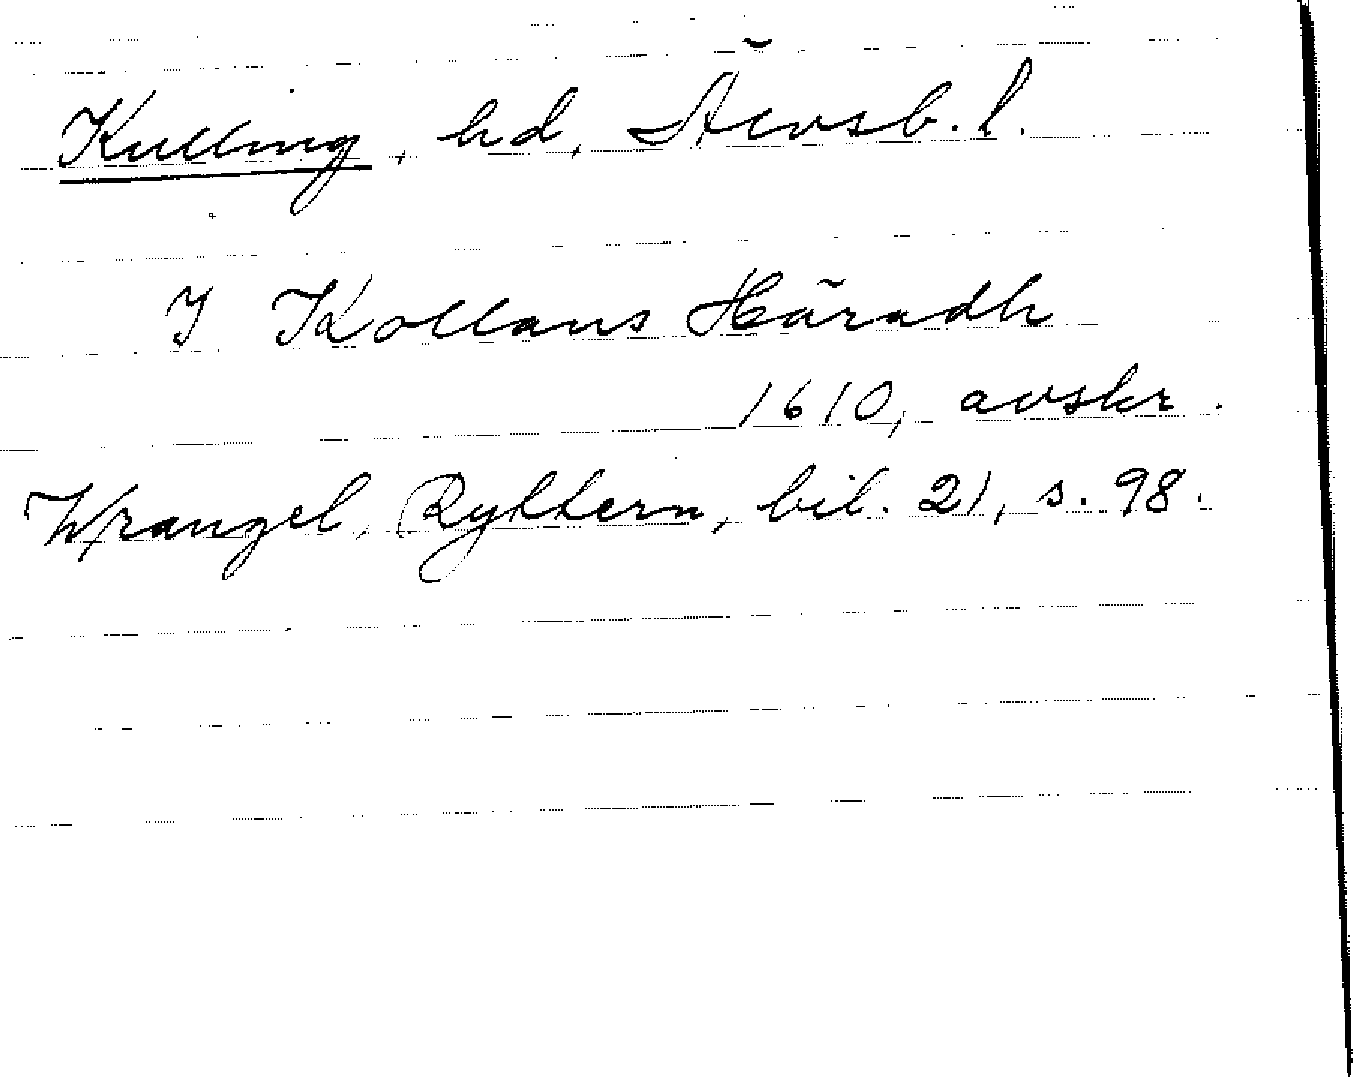 Kulling, hd, Älvsb. l.
I Kollans Häradh
1610, avskr.
Wrangel, Ryttern, bil. 21, s. 98.